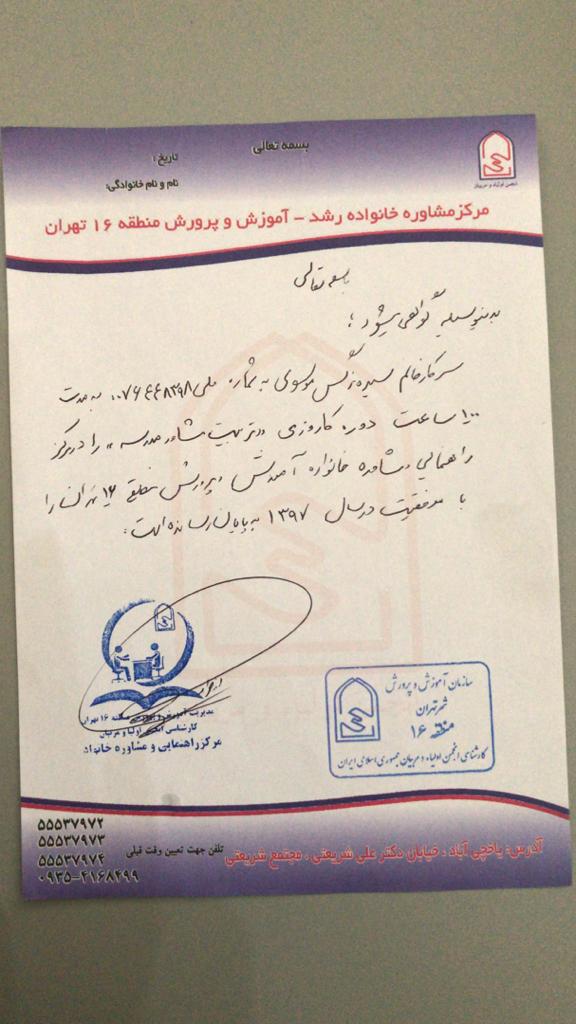 بسمه تعالی
تاریخ:
نام و نام خانوادگی:
انجمن اولیاء و مربیان
مرکز مشاوره خانواده رشد - آموزش و پرورش منطقه ۱۶ تهران
باسمه تعالی
بدینوسیله گواهی میشود:
سرکار خانم سیده نرگس موسوی به شماره ملی به مدت
۱۰۰ ساعت دوره کارورزی «تربیت مشاور مدرسه» را در مرکز
راهنمایی و مشاوره خانواده آموزش و پرورش منطقه ۱۶ تهران را
با موفقیت در سال ۱۳۹۷ به پایان رسانده است.
سازمان آموزش و پرورش
شهر تهران
منطقه ۱۶
کارشناسی انجمن اولیاء و مربیان جمهوری اسلامی ایران
مدیریت آموزش و پرورش منطقه ۱۶ تهران
کارشناسی انجمن اولیا و مربیان
مرکز راهنمایی و مشاوره خانواده
آدرس: یاخچی آباد ، خیابان دکتر علی شریعتی ، مجتمع شریعتی
تلفن جهت تعیین وقت قبلی
۵۵۵۳۷۹۷۲
۵۵۵۳۷۹۷۳
۵۵۵۳۷۹۷۴
۰۹۳۵-۴۱۶۸۴۹۹